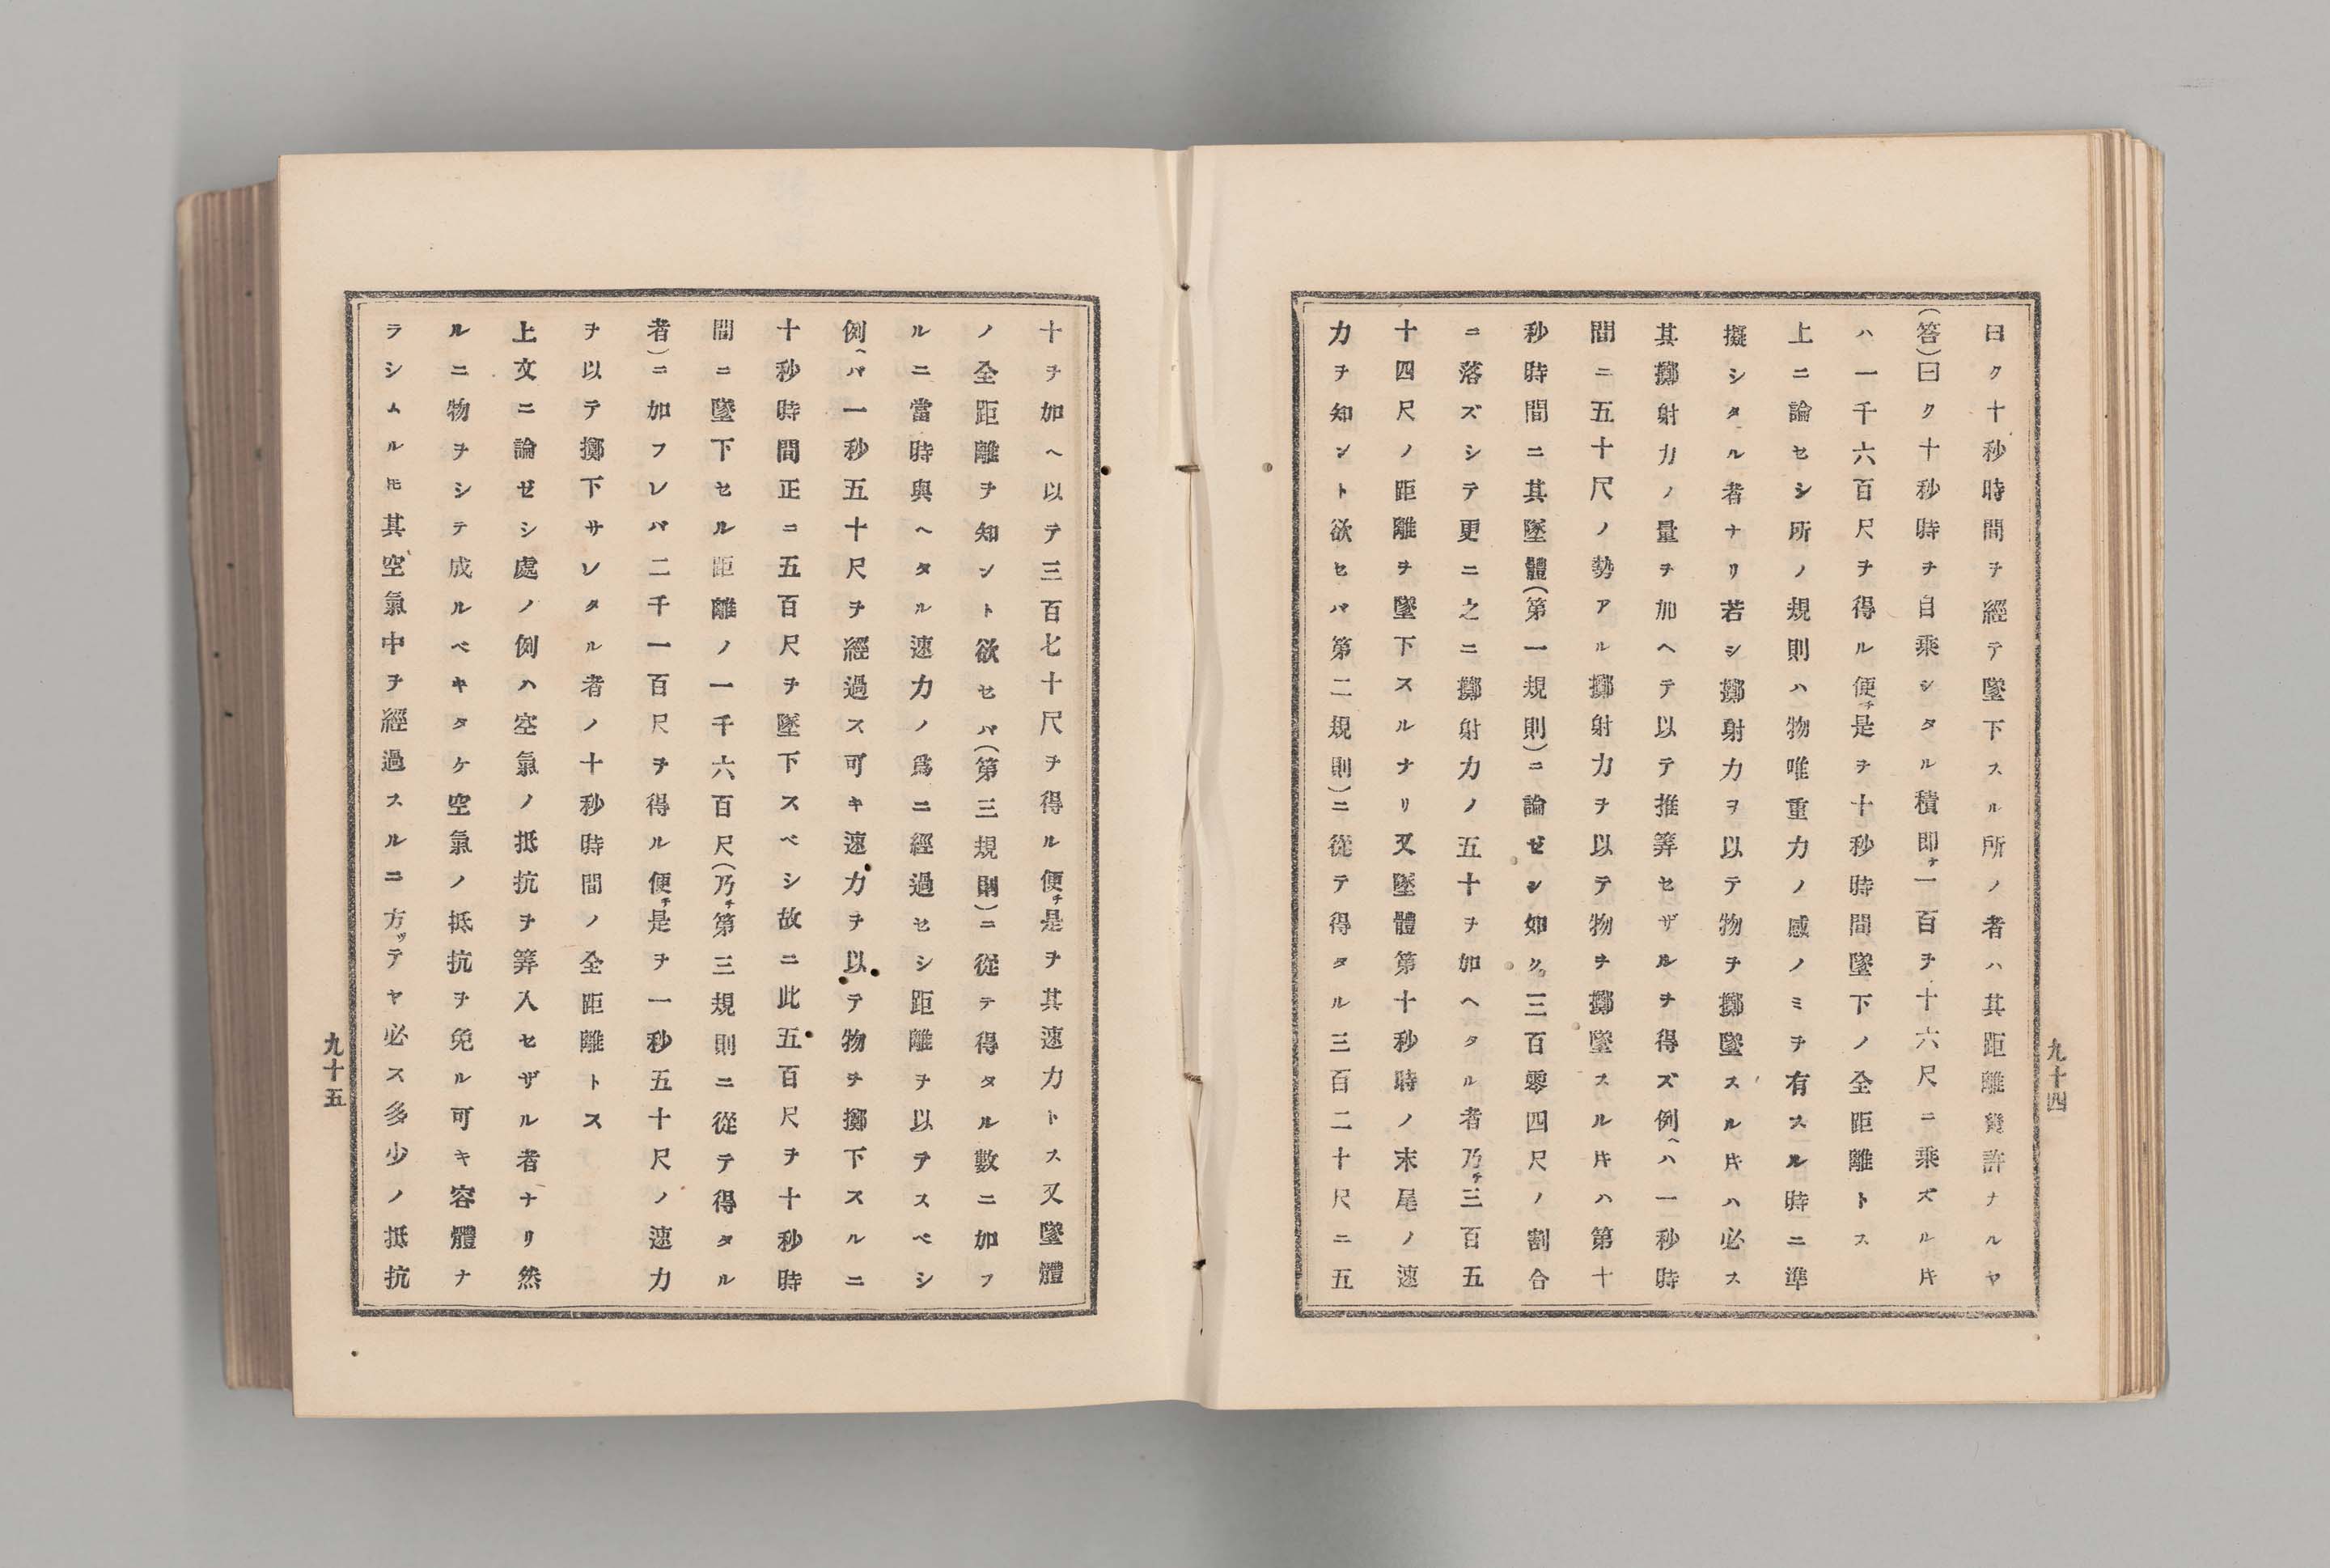 曰ク十秒時間ヲ經テ墜下スル所ノ者ハ其距離幾許ナルヤ
(答)曰ク十秒時ヲ自乘シタル積即チ一百ヲ十六尺ニ乘ズル𪜈
ハ一千六百尺ヲ得ル便チ是ヲ十秒時間墜下ノ全距離トス
上ニ論セシ所ノ規則ハ物唯重力ノ感ノミヲ有スル時ニ準
擬シタル者ナリ若シ擲射力ヲ以テ物ヲ擲墜スル𪜈ハ必ス
其擲射力ノ量ヲ加ヘテ以テ推筭セザルヲ得ズ例ヘハ一秒時
間ニ五十尺ノ勢アル擲射力ヲ以テ物ヲ擲墜スル𪜈ハ第十
秒時間ニ其墜體(第一規則)ニ論ゼシ如ク。三百零四尺ノ割合
ニ落ズシテ更ニ之ニ擲射力ノ五十ヲ加ヘタル者乃チ三百五
十四尺ノ距離ヲ墜下スルナリ又墜體第十秒時ノ末尾ノ速
力ヲ知ント欲セバ第二規則)ニ從テ得タル三百二十尺ニ五
九十四
十ヲ加ヘ以テ三百七十尺ヲ得ル便チ是ヲ其速力トス又墜體
ノ全距離ヲ知ント欲セバ(第三規則)ニ從テ得タル數ニ加フ
ルニ當時與ヘタル速力ノ爲ニ經過セシ距離ヲ以テスベシ
例ヘバ一秒五十尺ヲ經過ス可キ速力ヲ以テ物ヲ擲下スルニ
十秒時間正ニ五百尺ヲ墜下スベシ故ニ此五百尺ヲ十秒時
間ニ墜下セル距離ノ一千六百尺(乃チ第三規則ニ從テ得タル
者)ニ加フレバ二千一百尺ヲ得ル便チ是ヲ一秒五十尺ノ速力
ヲ以テ擲下サレタル者ノ十秒時間ノ全距離トス
上文ニ論ゼシ處ノ例ハ空氣ノ抵抗ヲ筭入セザル者ナリ然
ルニ物ヲシテ成ルベキタケ空氣ノ抵抗ヲ免ル可キ容體ナ
ラシムル𪜈其空氣中ヲ經過スルニ方ッテヤ必ス多少ノ抵抗
九十五